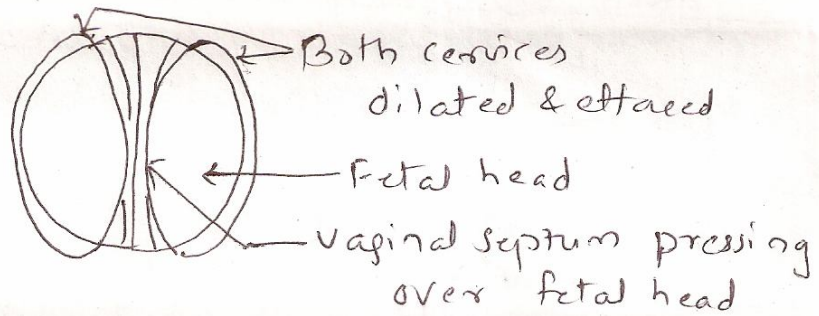 Both cervices
dilated & effaced
Fetal head
vaginal septum pressing
over fetal head